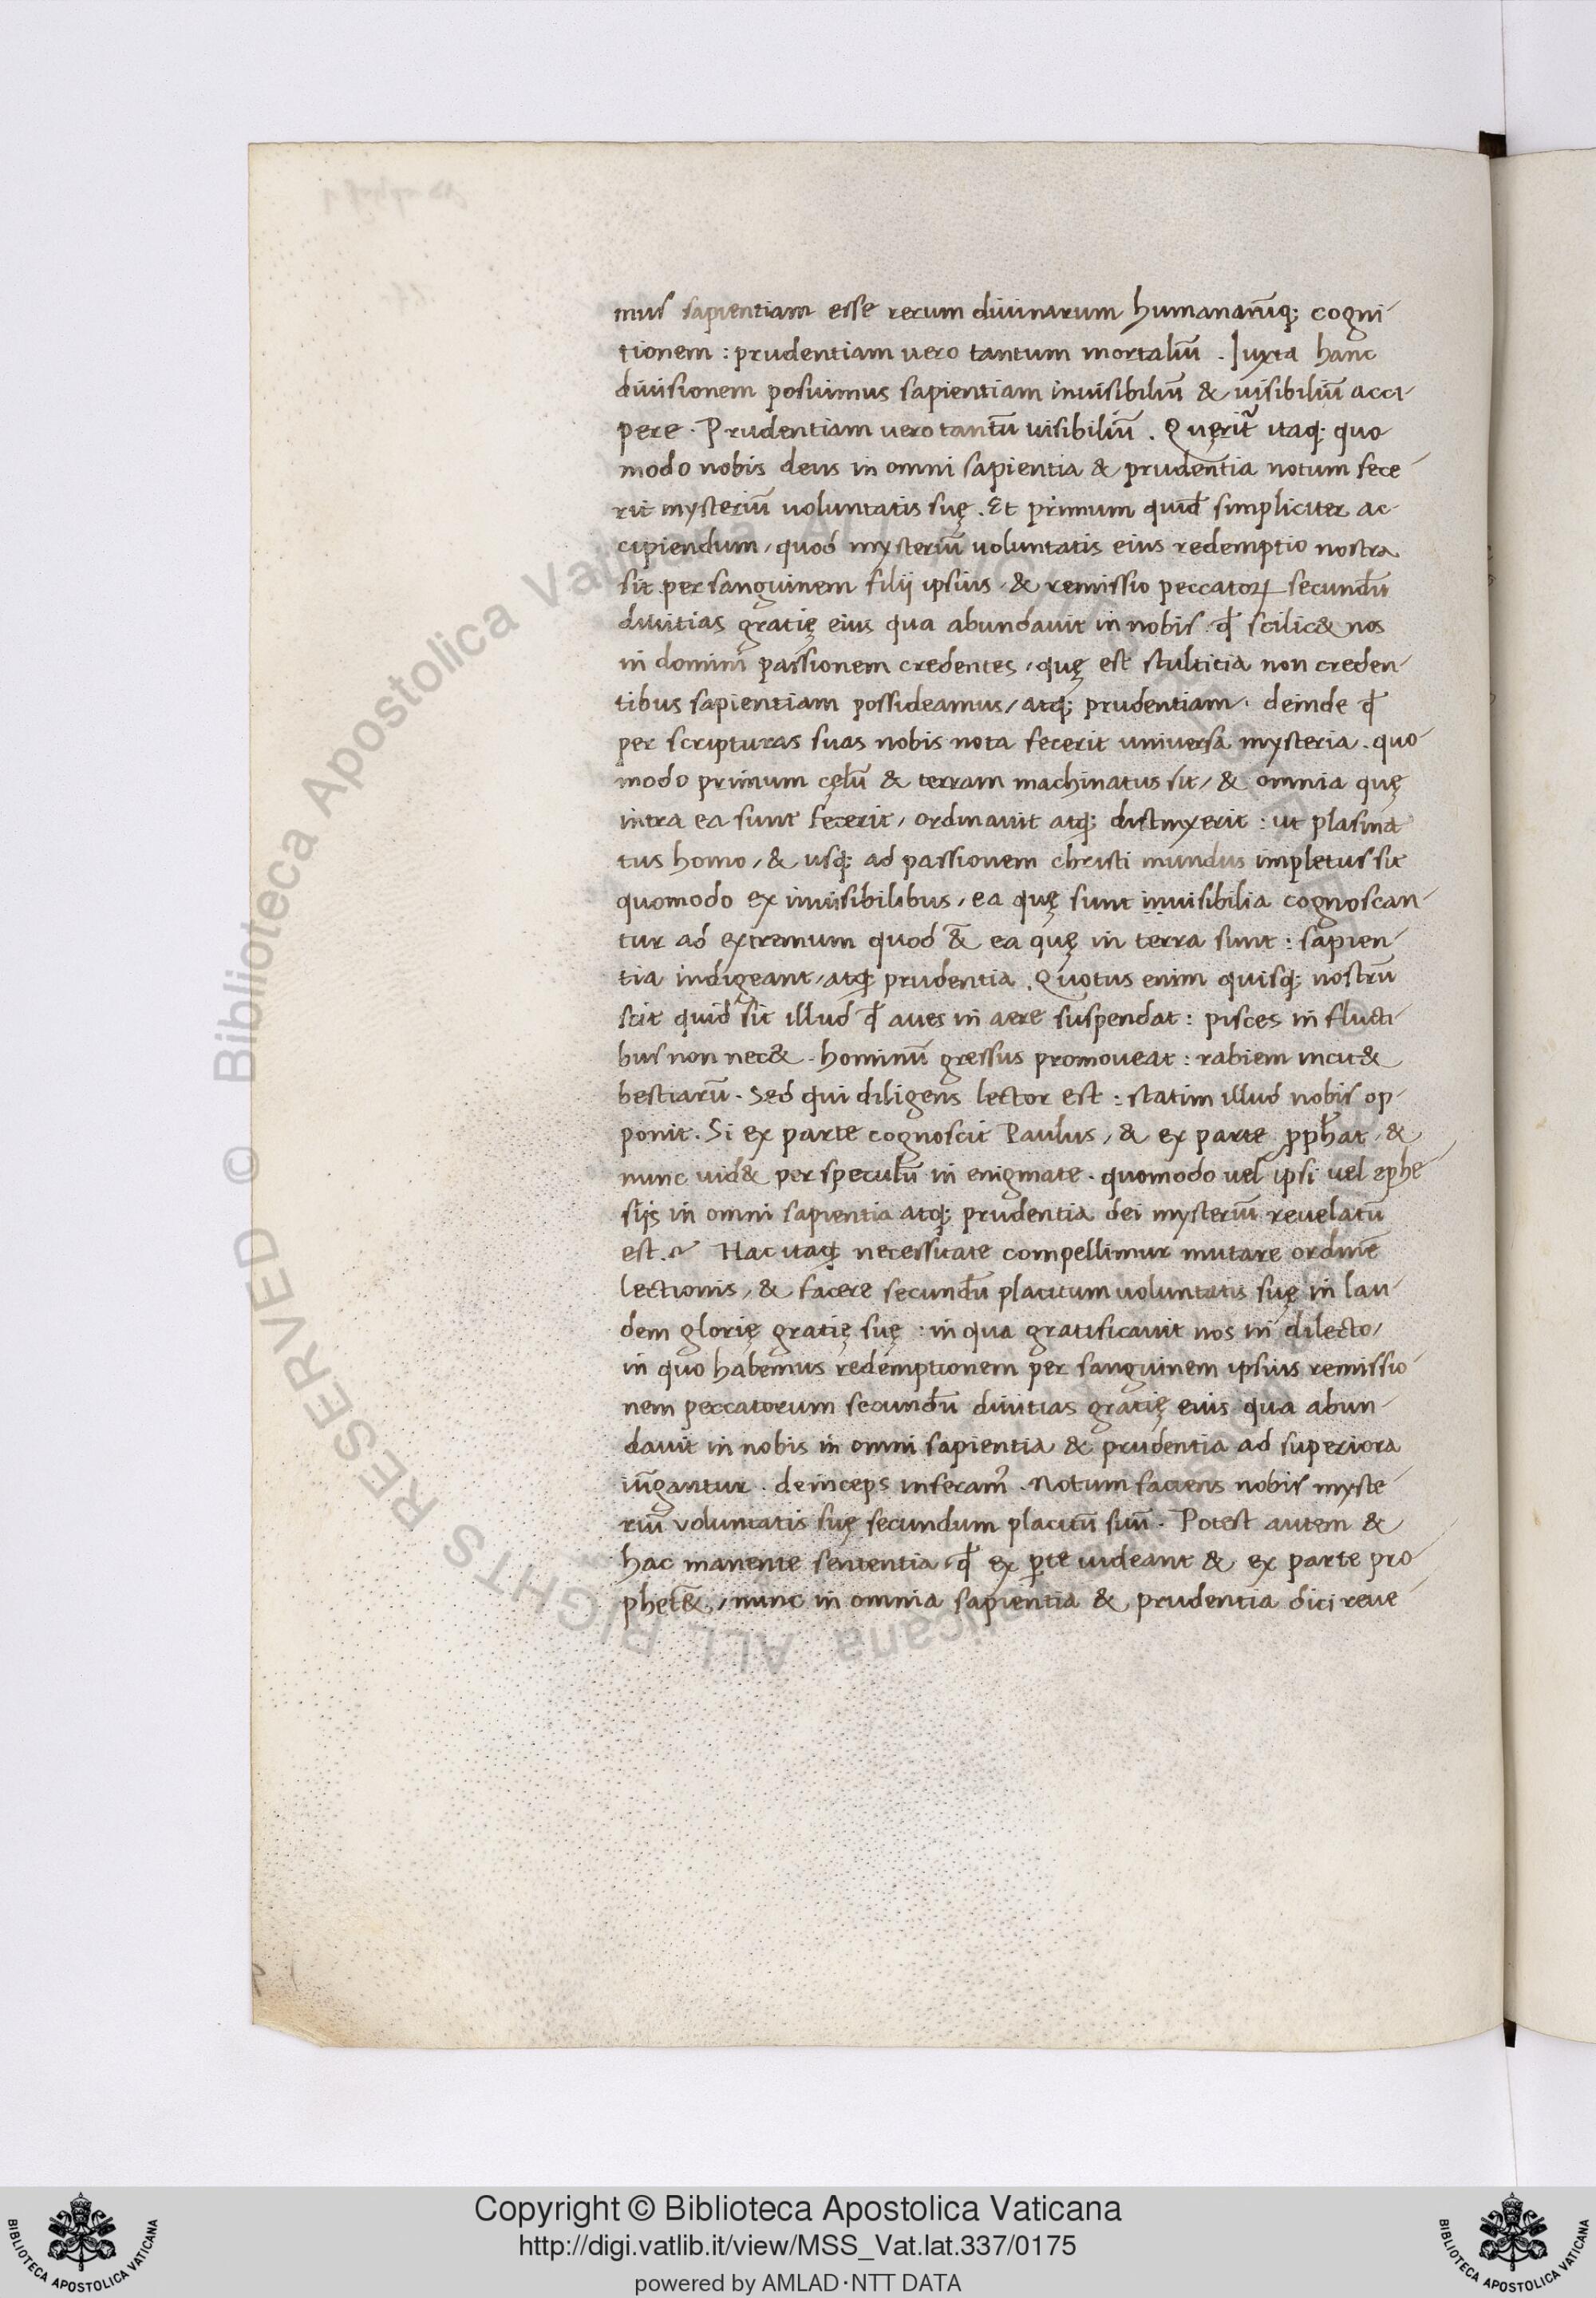 mus sapientiam esse rerum diuinarum humanarūq; cogni-
tionem : prudentiam uero tantum mortaliū . Iuxta hanc
diuisionem posuimus sapientiam inuisibiliū & uisibiliū acci-
pere . Prudentiam uero tantū uisibiliū . Quęrit᷑ itaq; quo
modo nobis deus in omni sapientia & prudentia notum fece-
rit mysteriū uoluntatis suę . Et primum quid̄ simpliciter ac-
cipiendum, quod mysteriū uoluntatis eius redemptio nostra
sit per sanguinem filij ipsius, & remissio peccatoꝝ secundū
diuitias gratię eius qua abundauit in nobis . ꝙ scilic& nos
in domini passionem credentes, quę est stultitia non creden-
tibus sapientiam possideamus, atq; prudentiam . deinde ꝙ
per scripturas suas nobis nota fecerit universa mysteria . quo-
modo primum cęlū & terram machinatus sit, & omnia quę
intra ea sunt fecerit, ordinauit atq; distinxerit : ut plasma
tus homo, & usq; ad passionem christi mundus impletus sit
quomodo ex inuisibilibus, ea quę sunt inuisibilia cognoscan-
tur ad extremum quod &̄ ea quę in terra sunt : sapien-
tia indigeant, atq; prudentia . Quotus enim quisq; nostrū
scit quid sit illud ꝙ aues in aere suspendat : pisces in flucti-
bus non nec& . hominū gressus promoueat : rabiem incit&
bestiarū . Sed qui diligens lector est : statim illud nobis op-
ponit . Si ex parte cognoscit Paulus, & ex parte ꝓph̄at, &
nunc uid& per speculū in enigmate . quomodo vel ipsi vel ephe-
sijs in omni sapientia atq; prudentia dei mysteriū reuelatū
est . Hac itaq; necessitate compellimur mutare ordinē
lectionis, & facere secundū placitum uoluntatis suę in lau-
dem glorię gratię suę : in qua gratificauit nos in dilecto,
in quo habemus redemptionem per sanguinem ipsius remissio-
nem peccatorum secundū diuitias gratię eius qua abun-
dauit in nobis in omni sapientia & prudentia ad superiora
iūgantur . deinceps inferam᷒ . Notum faciens nobis myste-
riū voluntatis suę secundum placitū suū . Potest autem &
hac manente sententia, ꝙ ex ꝑte uideant & ex parte pro-
phęt&, nunc in omnia sapientia & prudentia dici reue-
© Biblioteca Apostolica Vaticana ALL RIGHTS RESERVED
Copyright © Biblioteca Apostolica Vaticana
http://digi.vatlib.it/view/MSS_Vat.lat.337/0175
powered by AMLAD·NTT DATA
BIBLIOTECA APOSTOLICA VATICANA
BIBLIOTECA APOSTOLICA VATICANA